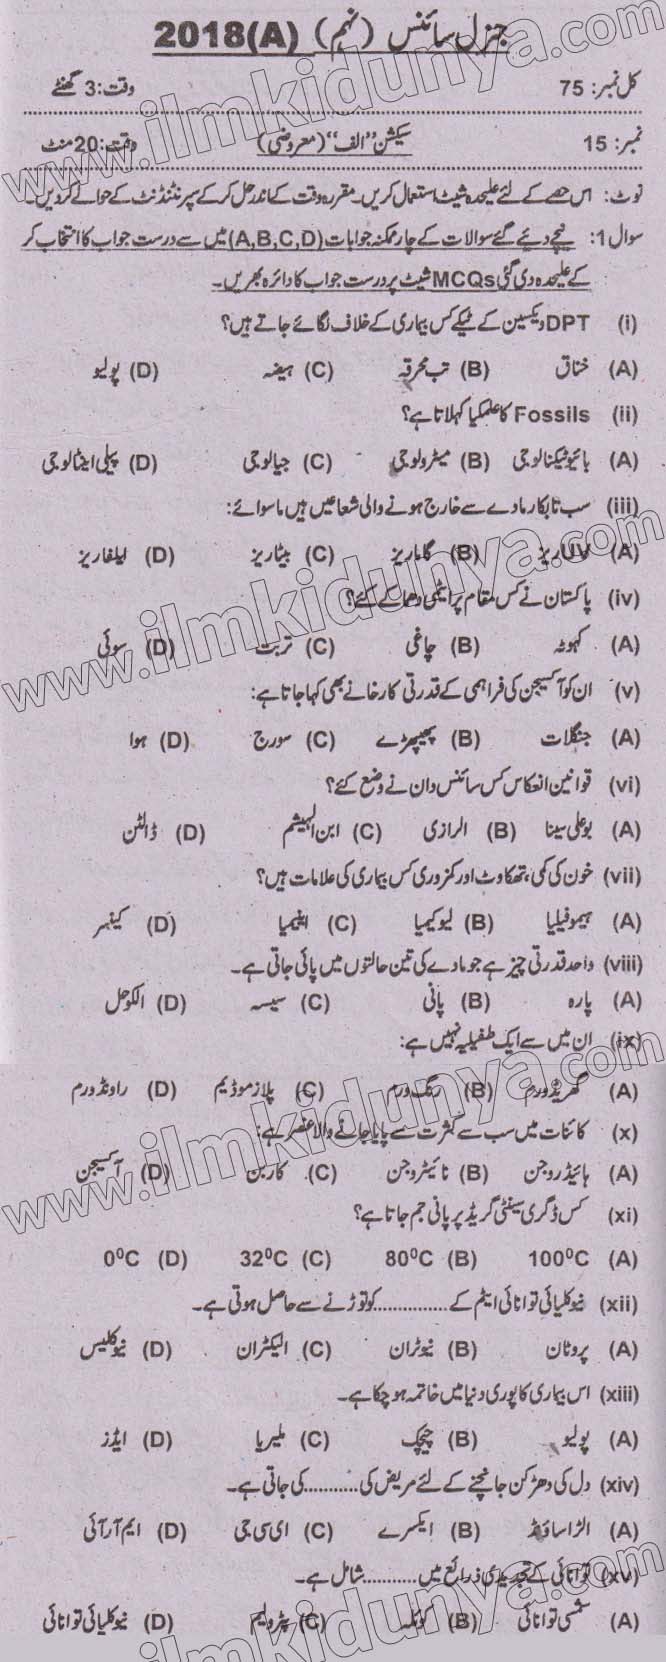 جنرل سائنس (نہم) 2018(A)
کل نمبر: 75 وقت: 3 گھنٹے
نمبر: 15 سیکشن "الف" (معروضی) وقت: 20 منٹ
نوٹ: اس حصے کے لئے علیحدہ شیٹ استعمال کریں۔ مقررہ وقت کے اندر حل کر کے سپرنٹنڈنٹ کے حوالے کر دیں۔
سوال 1: نیچے دیئے گئے سوالات کے چار ممکنہ جوابات (A,B,C,D) میں سے درست جواب کا انتخاب کر
کے علیحدہ دی گئی MCQs شیٹ پر درست جواب کا دائرہ بھریں۔
(i) DPT ویکسین کے ٹیکے کس بیماری کے خلاف لگائے جاتے ہیں؟
(A) خناق (B) تپ محرقہ (C) ہیضہ (D) پولیو
(ii) Fossils کا علم کیا کہلاتا ہے؟
(A) بائیوٹیکنالوجی (B) میٹرولوجی (C) جیالوجی (D) پیلی اینٹالوجی
(iii) سب تابکار مادے سے خارج ہونے والی شعاعیں ہیں ماسوائے:
(A) UV ریز (B) گاما ریز (C) بیٹا ریز (D) ایلفا ریز
(iv) پاکستان نے کس مقام پر ایٹمی دھماکے کئے؟
(A) کہوٹہ (B) چاغی (C) تربت (D) سوئی
(v) ان کو آکسیجن کی فراہمی کے قدرتی کارخانے بھی کہا جاتا ہے:
(A) جنگلات (B) پھیپھڑے (C) سورج (D) ہوا
(vi) قوانین انعکاس کس سائنس دان نے وضع کئے؟
(A) بوعلی سینا (B) الرازی (C) ابن الہیشم (D) ڈالٹن
(vii) خون کی کمی، تھکاوٹ اور کمزوری کس بیماری کی علامات ہیں؟
(A) ہیموفیلیا (B) لیوکیمیا (C) اینیمیا (D) کینسر
(viii) واحد قدرتی چیز ہے جو مادے کی تین حالتوں میں پائی جاتی ہے۔
(A) پارہ (B) پانی (C) سیسہ (D) الکوحل
(ix) ان میں سے ایک طفیلیہ نہیں ہے:
(A) گھریڈ ورم (B) رنگ ورم (C) پلازموڈیم (D) راونڈ ورم
(x) کائنات میں سب سے کثرت سے پایا جانے والا عنصر ہے:
(A) ہائیڈروجن (B) نائیٹروجن (C) کاربن (D) آکسیجن
(xi) کس ڈگری سینٹی گریڈ پر پانی جم جاتا ہے؟
(A) 100⁰C (B) 80⁰C (C) 32⁰C (D) 0⁰C
(xii) نیوکلیائی توانائی ایٹم کے ............... کو توڑنے سے حاصل ہوتی ہے۔
(A) پروٹان (B) نیوٹران (C) الیکٹران (D) نیوکلیس
(xiii) اس بیماری کا پوری دنیا میں خاتمہ ہو چکا ہے۔
(A) پولیو (B) چیچک (C) ملیریا (D) ایڈز
(xiv) دل کی دھڑکن جانچنے کے لئے مریض کی ........... کی جاتی ہے۔
(A) الڑا ساؤنڈ (B) ایکسرے (C) ای سی جی (D) ایم آر آئی
(xv) توانائی کے تجدیدی ذرائع میں .......... شامل ہے۔
(A) شمسی توانائی (B) کوئلہ (C) پٹرولیم (D) نیوکلیائی توانائی
www.ilmkidunya.com
www.ilmkidunya.com
www.ilmkidunya.com
www.ilmkidunya.com